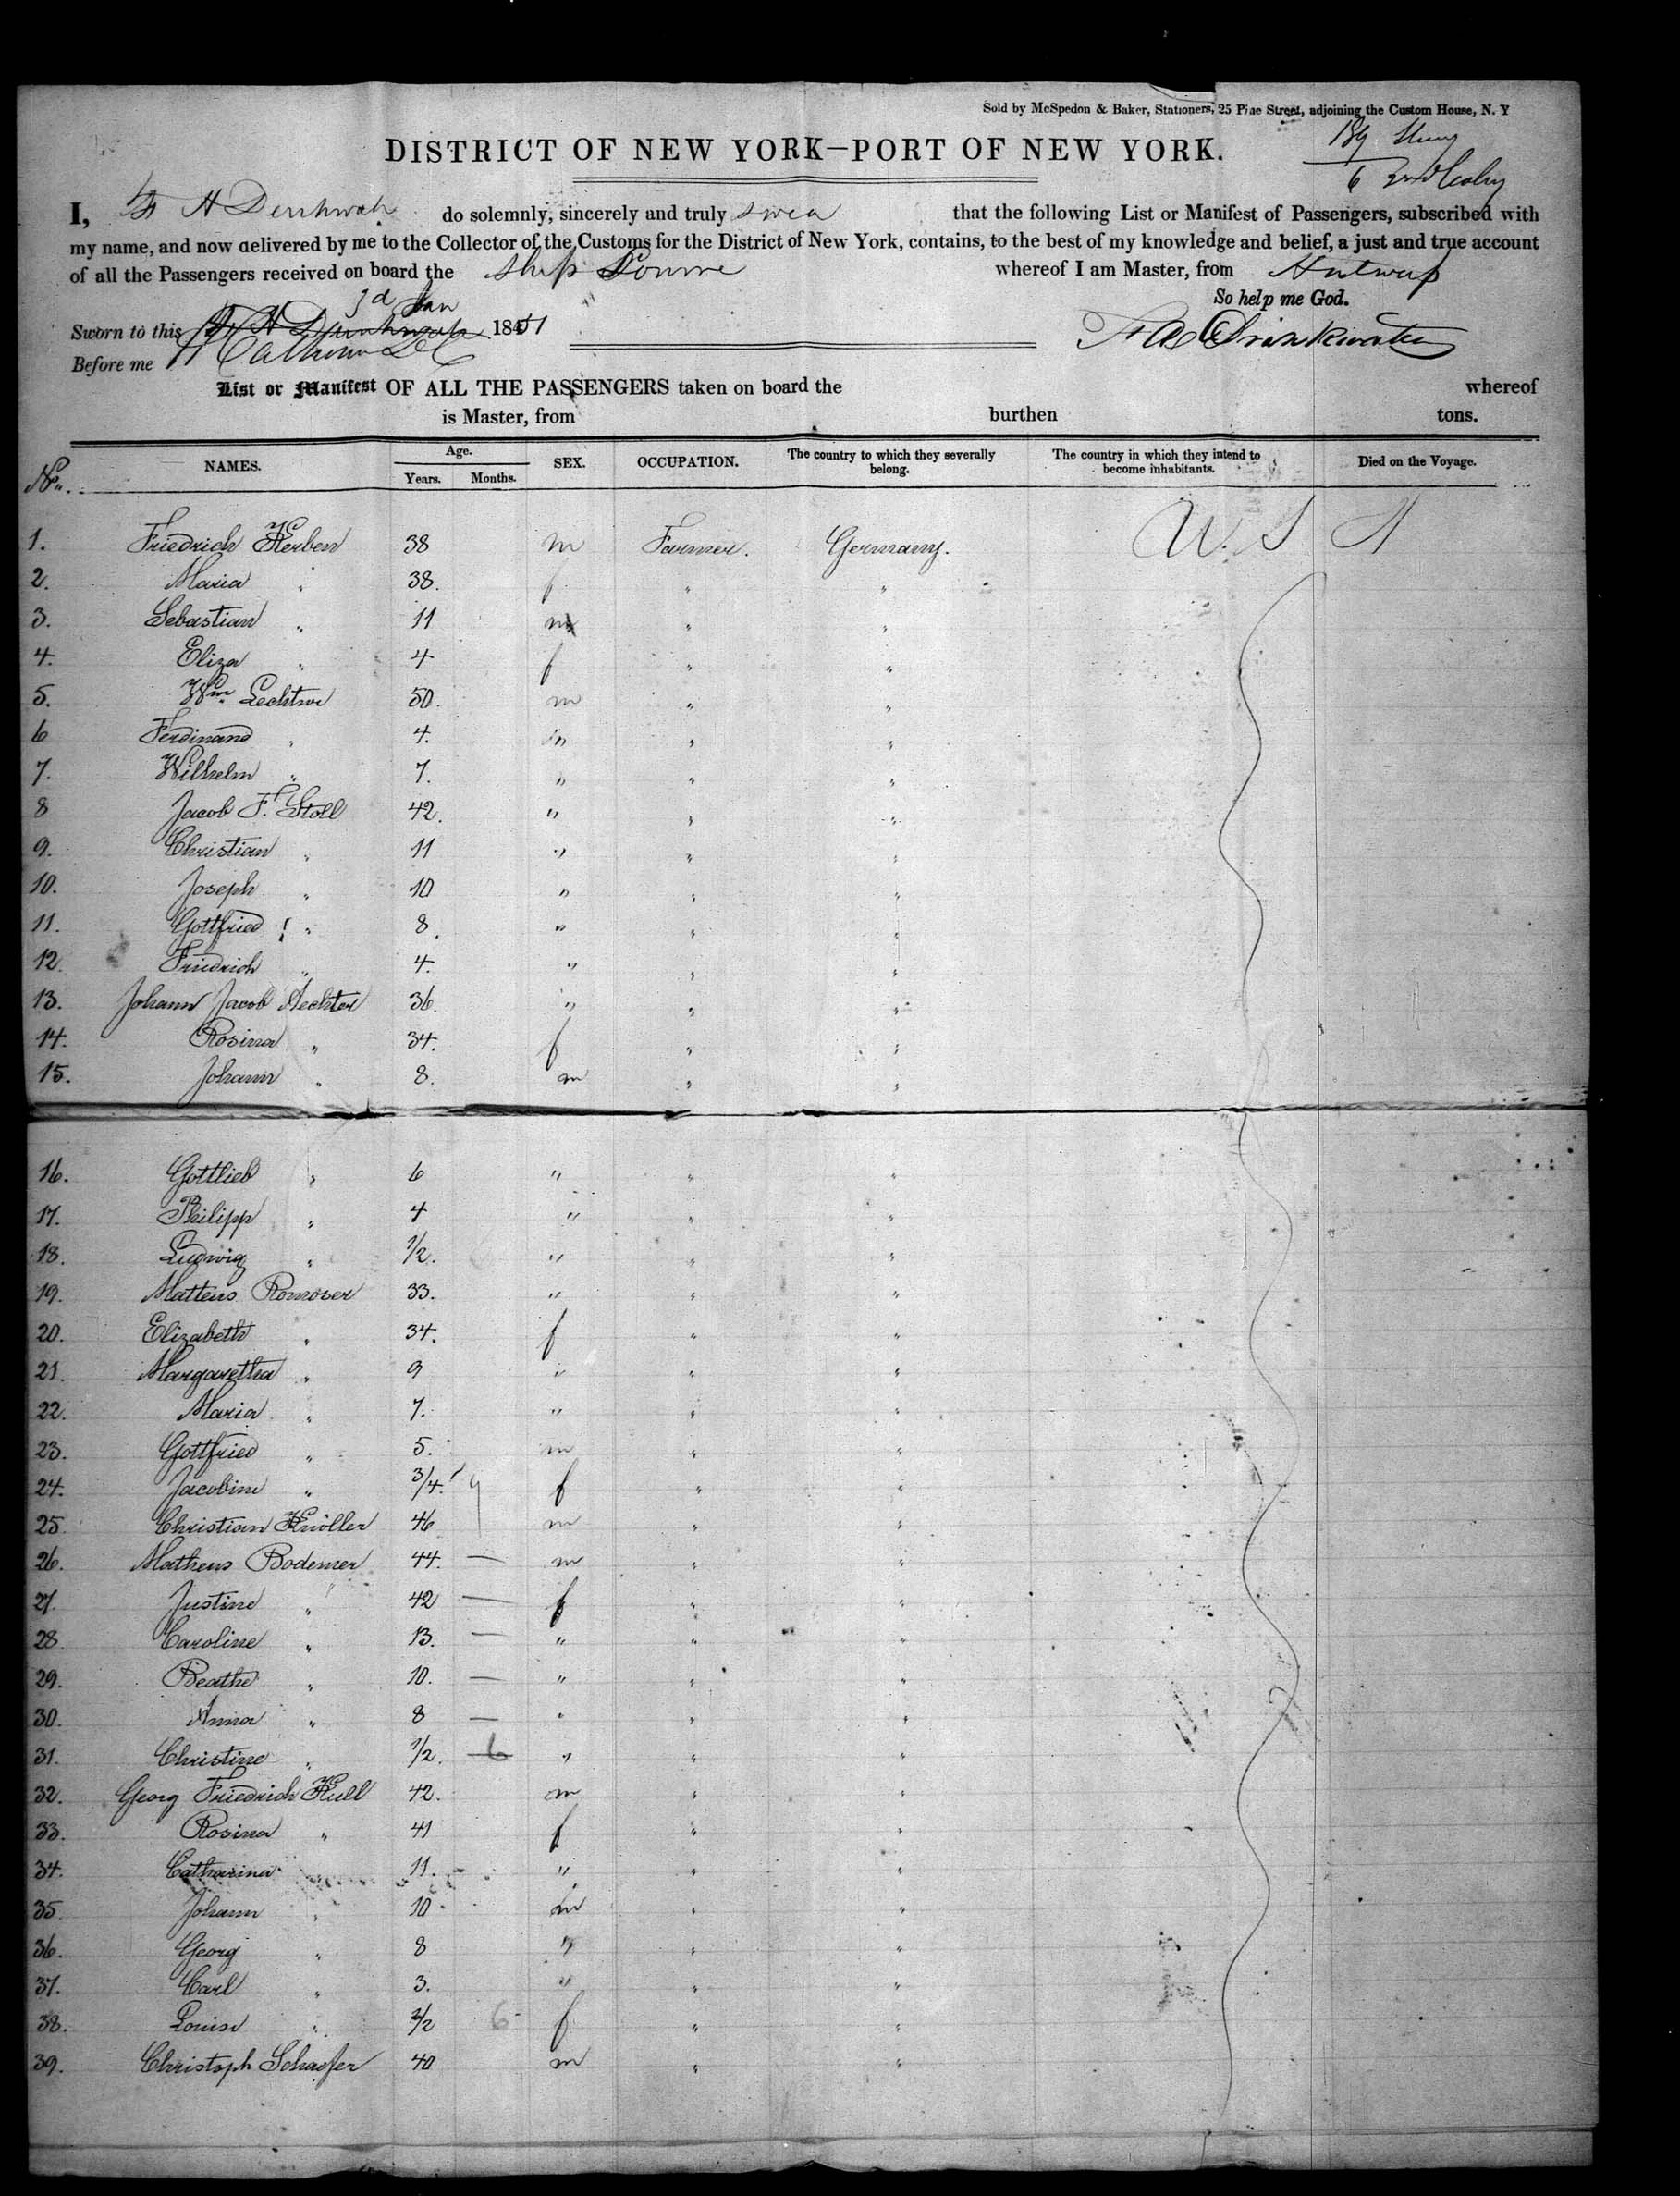 Sold by McSpedon & Baker, Stationers, 25 Pine Street, adjoining the Custom House, N. Y
DISTRICT OF NEW YORK—PORT OF NEW YORK.
I, do solemnly, sincerely and truly swear that the following List or Manifest of Passengers, subscribed with
my name, and now delivered by me to the Collector of the Customs for the District of New York, contains, to the best of my knowledge and belief, a just and true account
of all the Passengers received on board the ship whereof I am Master, from Antwerp
So help me God.
Sworn to this 3d Jan 1851
Before me
Drinkwater
List or Manifest OF ALL THE PASSENGERS taken on board the whereof
is Master, from burthen tons.
No. NAMES. Age. Years. Months. SEX. OCCUPATION. The country to which they severally belong. The country in which they intend to become inhabitants. Died on the Voyage.
1. Friedrich Kerben 38 m Farmer. Germany. U. S
2. Maria " 38. f " "
3. Sebastian " 11 m " "
4. Eliza " 4 f " "
5. Wm. 50. m " "
6 Ferdinand " 4. m " "
7. Wilhelm " 7. " " "
8 Jacob F. Stoll 42. " " "
9. Christian " 11 " " "
10. Joseph " 10 " " "
11. Gottfried " 8. " " "
12. Friedrich " 4. " " "
13. Johann Jacob Aechter 36. " " "
14. Rosina " 34. f " "
15. Johann " 8. m " "
16. Gottlieb " 6 " " "
17. Philipp " 4 " " "
18. Ludwig " 1/2. " " "
19. Matteus Romoser 33. " " "
20. Elizabeth " 34. f " "
21. Margaretha " 9 " " "
22. Maria " 7. " " "
23. Gottfried " 5. m " "
24. Jacobine " 3/4. 9 f " "
25. Christian Knöller 46 m " "
26. Matheus Bodemer 44. — m " "
27. Justine " 42 — f " "
28. Caroline " 13. — " " "
29. Beathe " 10. — " " "
30. Anna " 8 — " " "
31. Christine " 1/2. 6 " " "
32. Georg Friedrich Kull 42. m " "
33. Rosina " 41 f " "
34. Catharina 11. " " "
35. Johann " 10 m " "
36. Georg " 8 " " "
37. Carl " 3. " " "
38. Louise " 1/2 6 f " "
39. Christoph Schaefer 40 m " "